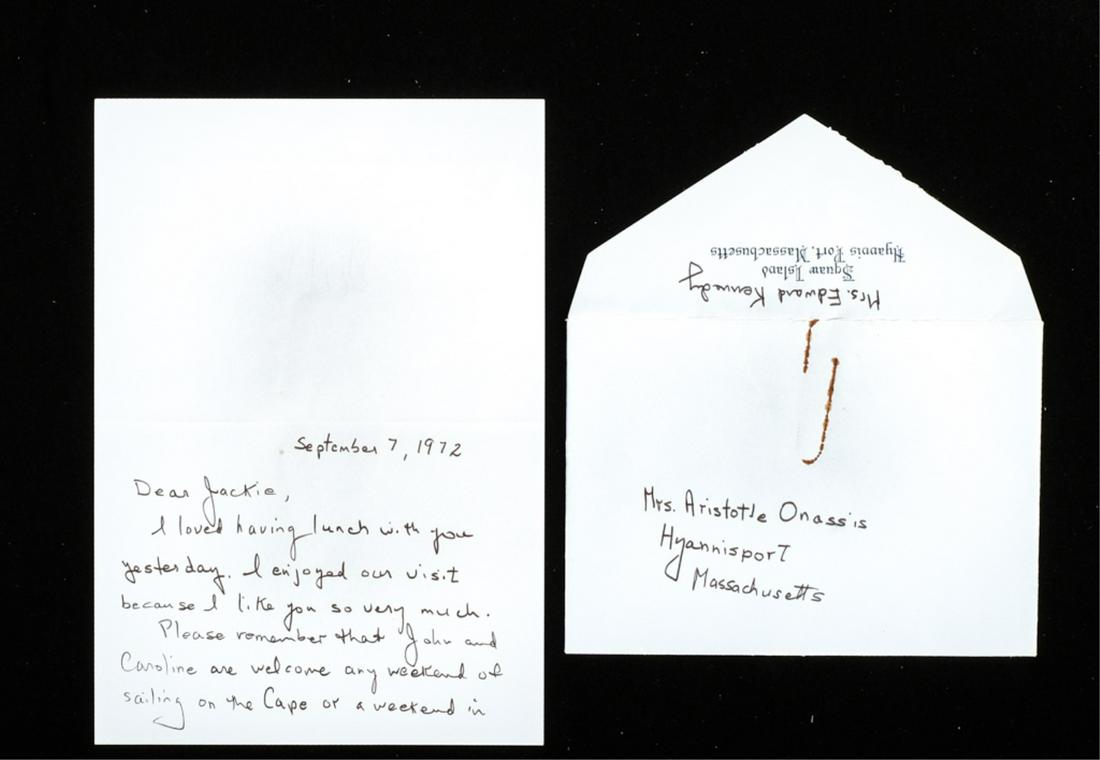 September 7, 1972
Dear Jackie,
I loved having lunch with you
yesterday. I enjoyed our visit
because I like you so very much.
Please remember that John and
Caroline are welcome any weekend of
sailing on the Cape or a weekend in
Mrs. Edward Kennedy
Squaw Island
Hyannis Port, Massachusetts
Mrs. Aristotle Onassis
Hyannisport
Massachusetts